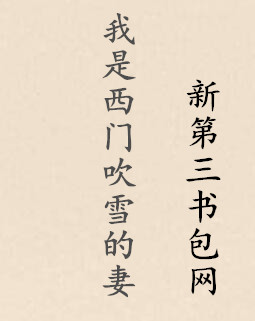 新第三书包网
我是西门吹雪的妻